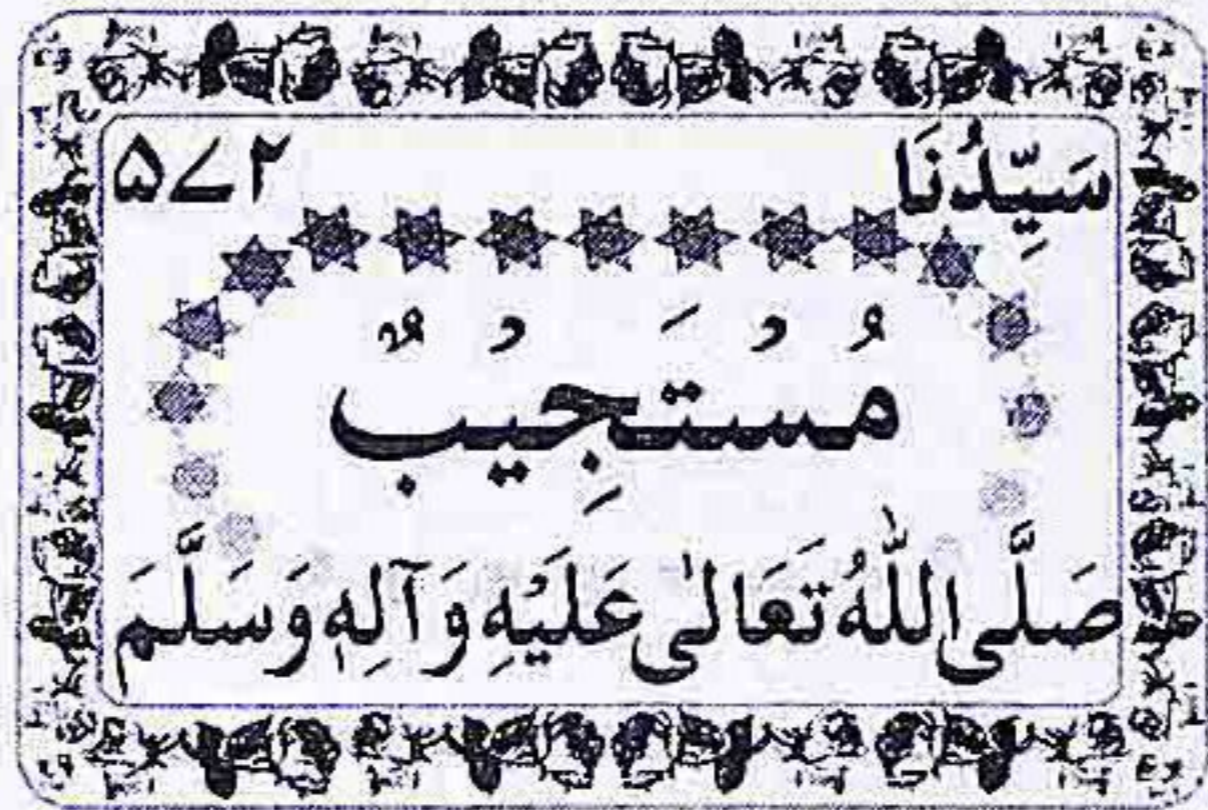 سَیِّدُنَا ۵۷۲
مُسْتَجِیْبٌ
صَلَّی اللّٰهُ تَعَالٰی عَلَیْهِ وَآلِهٖ وَسَلَّمَ